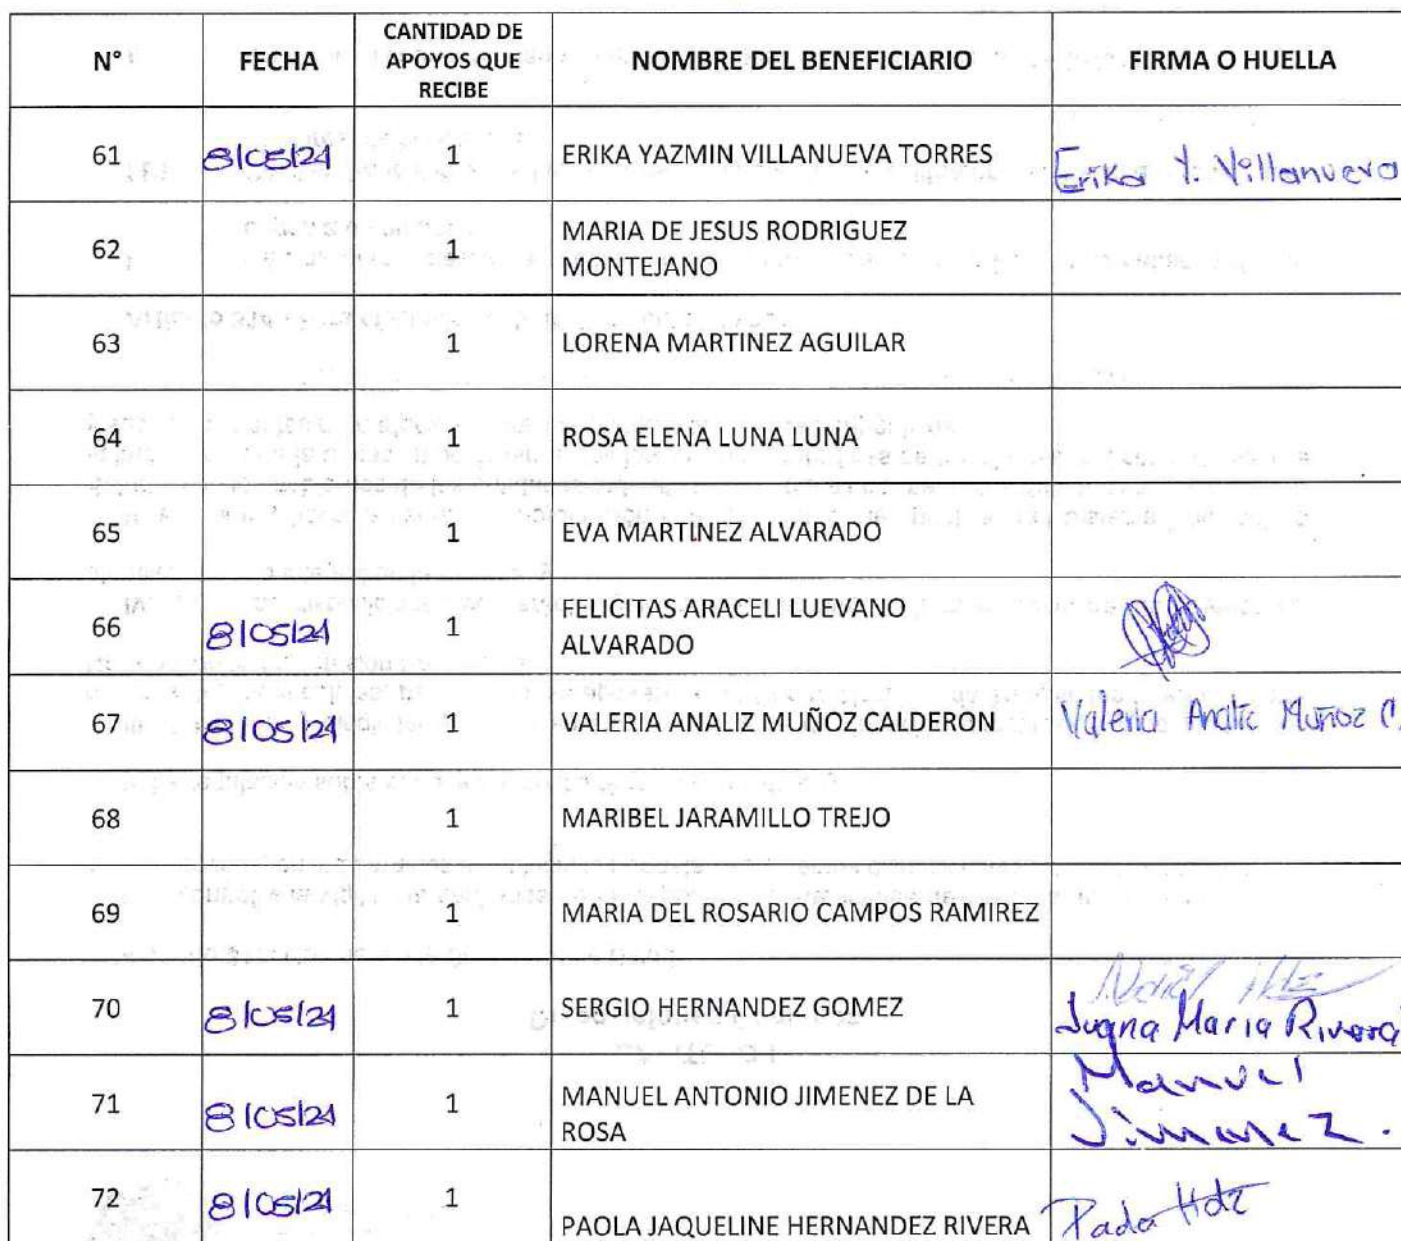 N° FECHA CANTIDAD DE APOYOS QUE RECIBE NOMBRE DEL BENEFICIARIO FIRMA O HUELLA
61 8/05/24 1 ERIKA YAZMIN VILLANUEVA TORRES Erika Y. Villanueva
62 1 MARIA DE JESUS RODRIGUEZ
MONTEJANO
63 1 LORENA MARTINEZ AGUILAR
64 1 ROSA ELENA LUNA LUNA
65 1 EVA MARTINEZ ALVARADO
66 8/05/24 1 FELICITAS ARACELI LUEVANO
ALVARADO
67 8/05/24 1 VALERIA ANALIZ MUÑOZ CALDERON Valeria Analiz Muñoz C.
68 1 MARIBEL JARAMILLO TREJO
69 1 MARIA DEL ROSARIO CAMPOS RAMIREZ
70 8/05/24 1 SERGIO HERNANDEZ GOMEZ Hdz
Juana Maria Rivera
71 8/05/24 1 MANUEL ANTONIO JIMENEZ DE LA
ROSA
Manuel
Jimenez.
72 8/05/24 1 PAOLA JAQUELINE HERNANDEZ RIVERA Paola Hdz